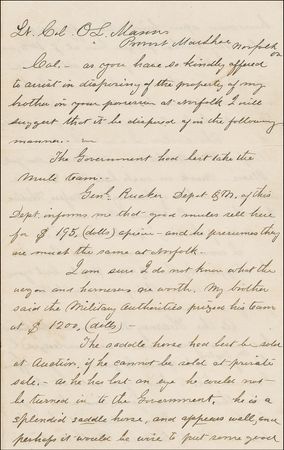 Lt. Col O L. Manns
Provost Marshal Norfolk
Va
Col. - as you have so kindly offered
to assist in disposing of the property of my
brother in your possession at Norfolk I will
suggest that it be disposed of in the following
manner. -
The Government had best take the
mule team. -
Genl. Rucker Depot Q.M. of this
Dept. informs me that good mules sell here
for $195, (dolls) apiece - and he presumes they
are much the same at Norfolk. -
I am sure I do not know what the
wagon and harnesses are worth. My brother
said the Military Authorities prized his team
at $1200, (dolls) -
The saddle horse had best be sold
at Auction, if he cannot be sold at private
sale. - As he has lost an eye he could not
be turned in to the Government. he is a
splendid saddle horse, and appears well, and
perhaps it would be wise to put some good